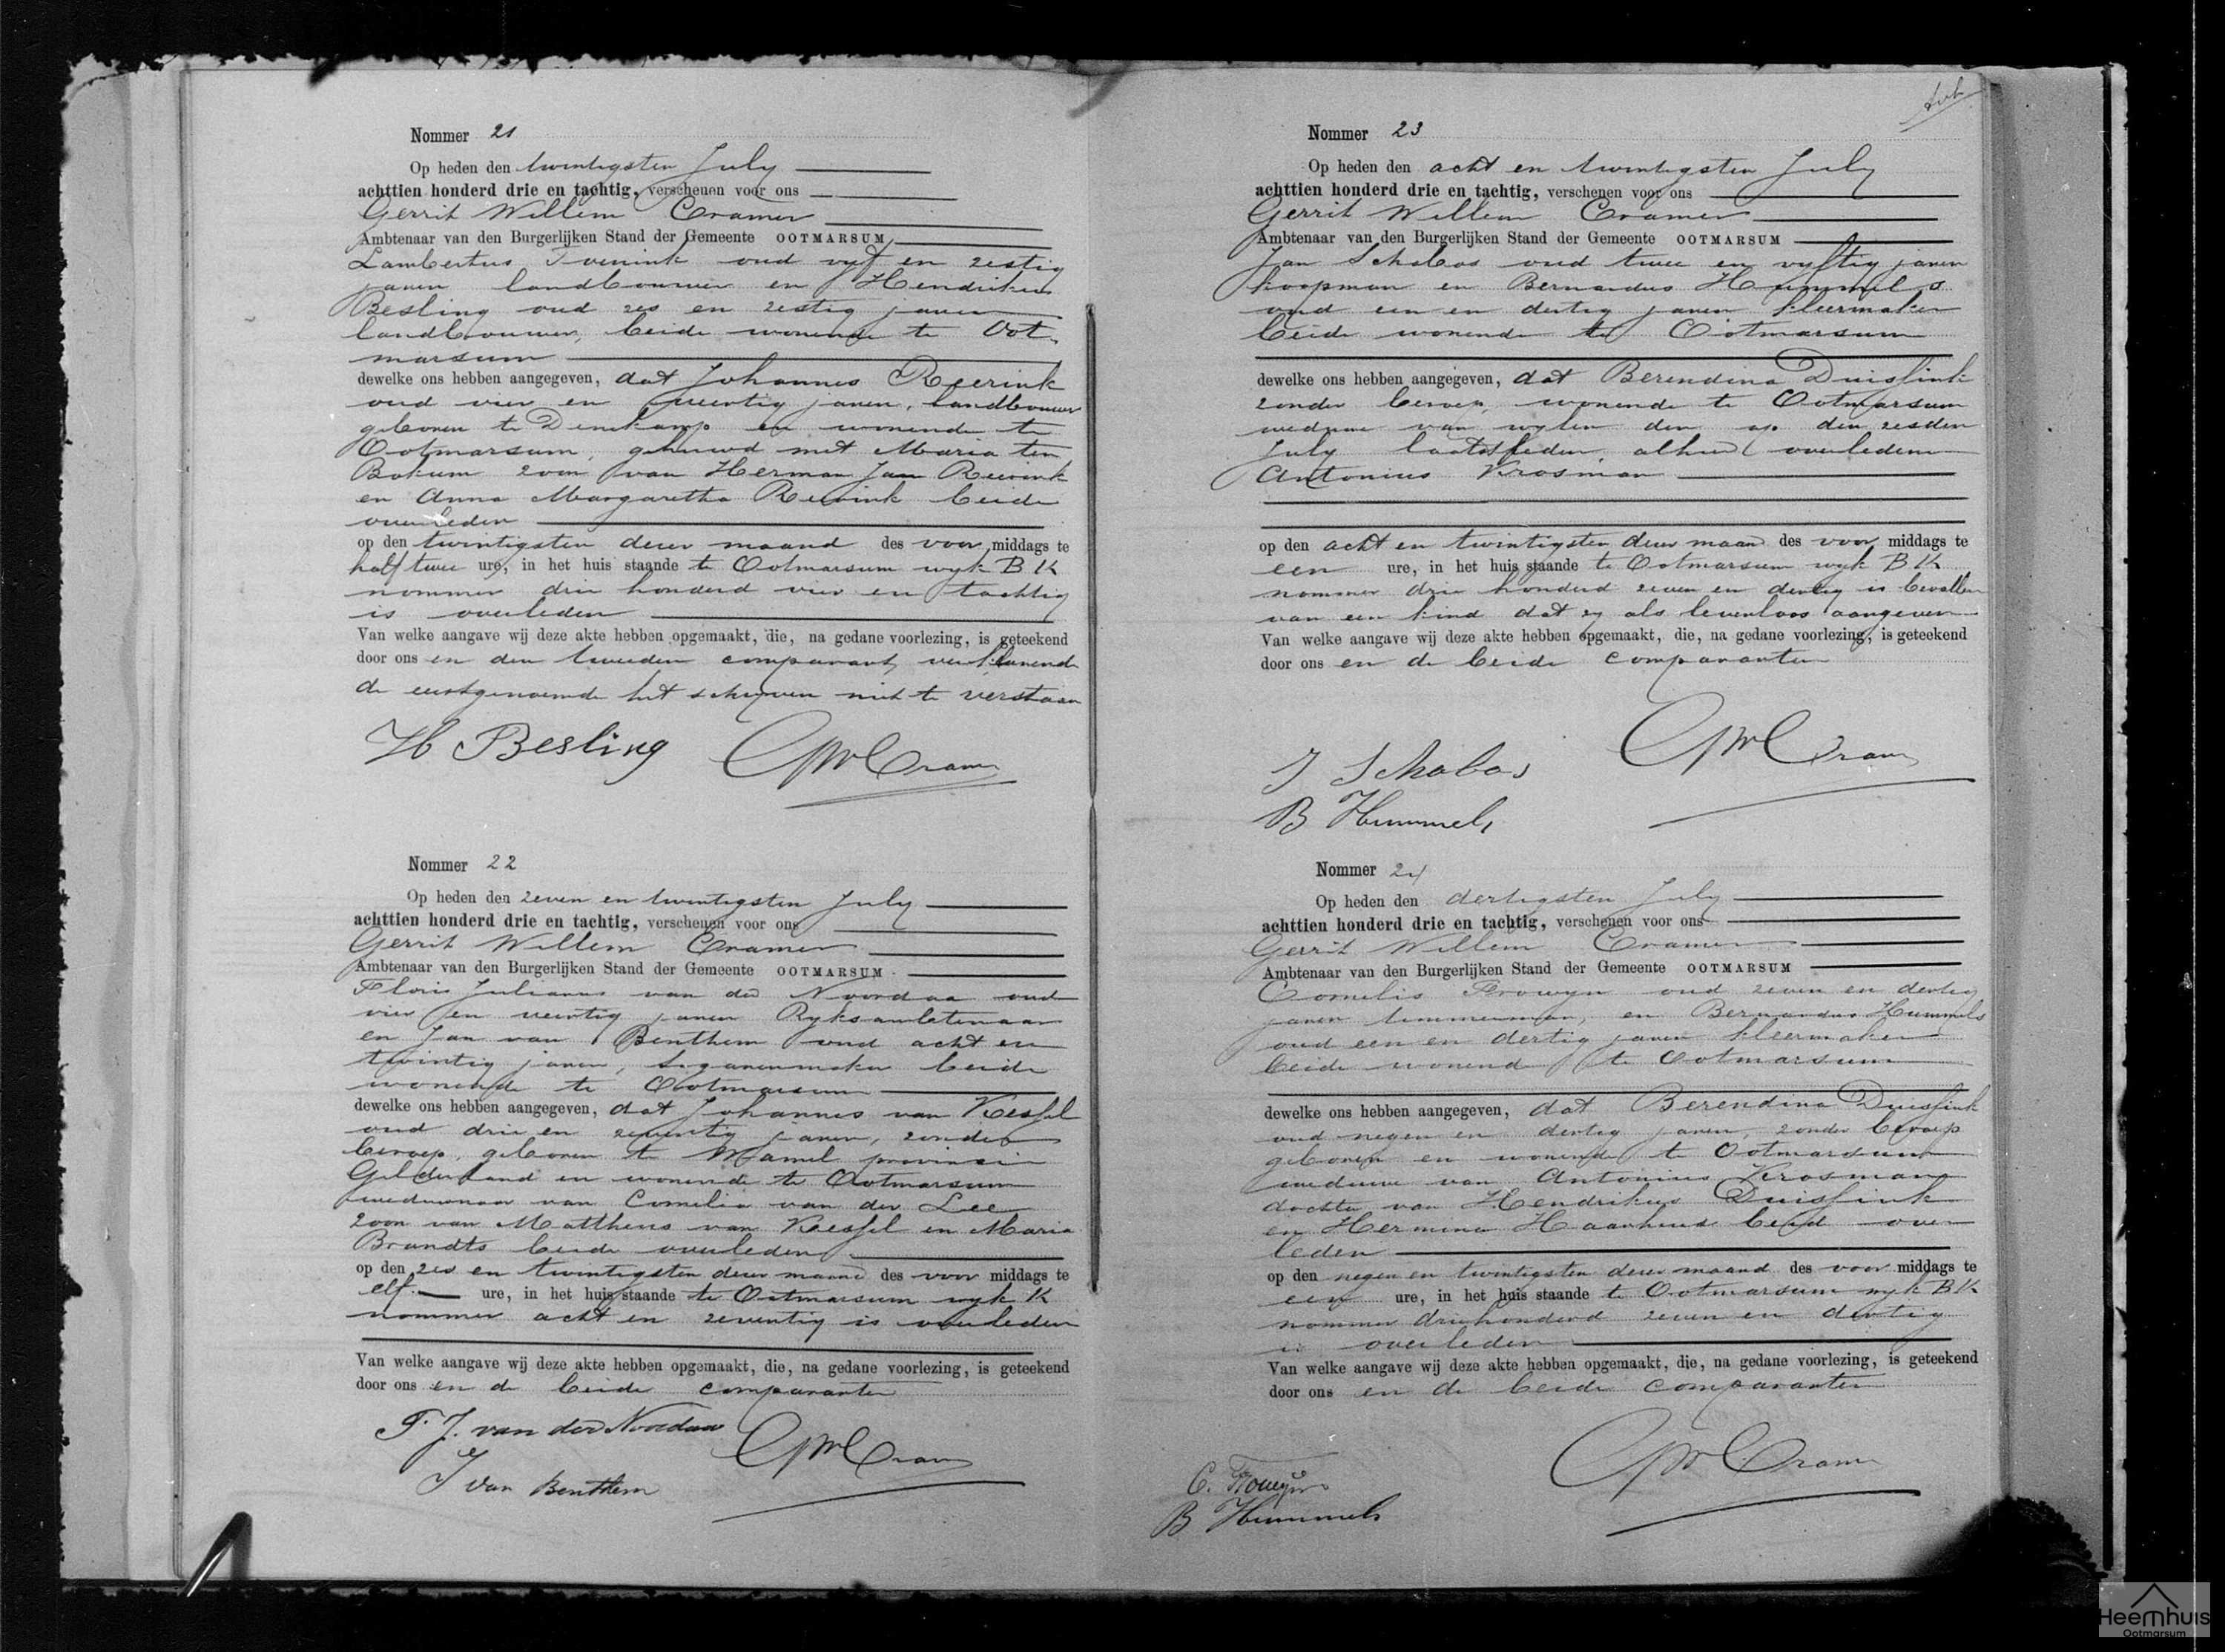 Nommer 21
Op heden den twintigsten July
achttien honderd drie en tachtig, verschenen voor ons
Gerrit Willem Cramer
Ambtenaar van den Burgerlijken Stand der Gemeente OOTMARSUM
Lambertus oud vyf en zestig
jaren landbouwer en Hendrikus
Besling oud zes en zestig jaren
landbouwer, beide wonende te Oot-
marsum
dewelke ons hebben aangegeven, dat Johannes Reerink
oud vier en jaren, landbouwer
geboren te Denekamp en wonende te
Ootmarsum, gehuwd met Maria ten
Bokum zoon van Herman Jan Reerink
en Anna Margaretha Reerink beide
overleden
op den twintigsten dezer maand des voor middags te
half twee ure, in het huis staande te Ootmarsum wyk B K
nommer drie honderd vier en tachtig
is overleden
Van welke aangave wij deze akte hebben opgemaakt, die, na gedane voorlezing, is geteekend
door ons en den tweeden comparant, verklarende
de eerstgenoemde het schryven niet te verstaan
H Besling GWCramer
Nommer 22
Op heden den zeven en twintigsten July
achttien honderd drie en tachtig, verschenen voor ons
Gerrit Willem Cramer
Ambtenaar van den Burgerlijken Stand der Gemeente OOTMARSUM
Floris Julianus van der Noordaa oud
vier en veertig jaren Ryksambtenaar
en Jan van Benthem oud acht en
twintig jaren, sigarenmaker beide
wonende te Ootmarsum
dewelke ons hebben aangegeven, dat Johannes van Kessel
oud drie en zeventig jaren, zonder
beroep, geboren te Mamel provincie
Gelderland en wonende te Ootmarsum
weduwnaar van Cornelia van der Lee
zoon van Mattheus van Kessel en Maria
Brandts beide overleden
op den zes en twintigsten dezer maand des voor middags te
elf ure, in het huis staande te Ootmarsum wyk K
nommer acht en zeventig is overleden
Van welke aangave wij deze akte hebben opgemaakt, die, na gedane voorlezing, is geteekend
door ons en de beide comparanten
F. J. van der Noordaa GWCramer
J van Benthem
Nommer 23
Op heden den acht en twintigsten July
achttien honderd drie en tachtig, verschenen voor ons
Gerrit Willem Cramer
Ambtenaar van den Burgerlijken Stand der Gemeente OOTMARSUM
Jan Schabos oud twee en vyftig jaren
koopman en Bernardus Hummels
oud een en dertig jaren kleermaker
beide wonende te Ootmarsum
dewelke ons hebben aangegeven, dat Berendina Duisfink
zonder beroep, wonende te Ootmarsum
weduwe van wylen den op den zesden
July laatstleden alhier overleden
Antonius Krosman
op den acht en twintigsten dezer maand des voor middags te
een ure, in het huis staande te Ootmarsum wyk B K
nommer drie honderd zeven en dertig is bevallen
van een kind dat zy als levenloos aangeven
Van welke aangave wij deze akte hebben opgemaakt, die, na gedane voorlezing, is geteekend
door ons en de beide comparanten
J Schabos GWCramer
B Hummels
Nommer 24
Op heden den dertigsten July
achttien honderd drie en tachtig, verschenen voor ons
Gerrit Willem Cramer
Ambtenaar van den Burgerlijken Stand der Gemeente OOTMARSUM
Cornelis Frowyn oud zeven en dertig
jaren timmerman, en Bernardus Hummels
oud een en dertig jaren kleermaker
beide wonend te Ootmarsum
dewelke ons hebben aangegeven, dat Berendina Duisfink
oud negen en dertig jaren, zonder beroep
geboren en wonende te Ootmarsum
weduwe van Antonius Krosman
dochter van Hendrikus Duisfink
en Hermina Haarhuis beide over
leden
op den negen en twintigsten dezer maand des voor middags te
een ure, in het huis staande te Ootmarsum wyk B K
nommer driehonderd zeven en dertig
is overleden
Van welke aangave wij deze akte hebben opgemaakt, die, na gedane voorlezing, is geteekend
door ons en de beide comparanten
C. Frowyn GWCramer
B Hummels
Heemhuis
Ootmarsum